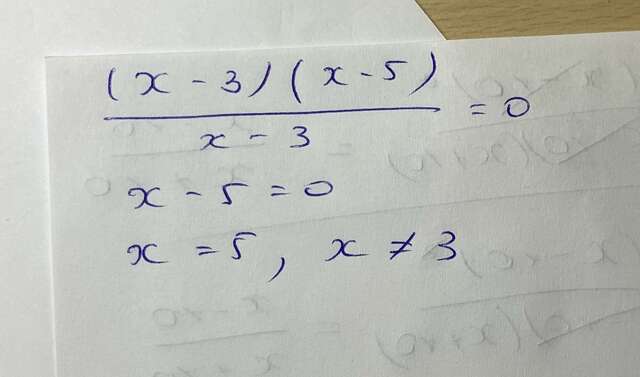 (x - 3)(x - 5)
x - 3
= 0
x - 5 = 0
x = 5, x ≠ 3